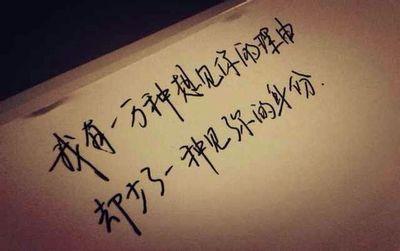 我有一万种想见你的理由
却少了一种见你的身份.